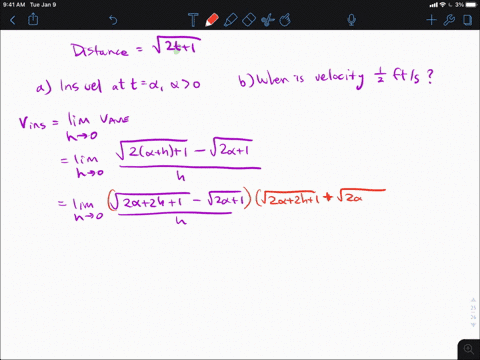 9:41 AM Tue Jan 9
3%
Distance = √(2t+1)
a) Ins vel at t=α, α>0
b) When is velocity 1/2 ft/s ?
V_INS = lim_{h→0} V_AVE
= lim_{h→0} (√(2(α+h)+1) − √(2α+1)) / h
= lim_{h→0} (√(2α+2h+1) − √(2α+1)) / h (√(2α+2h+1) + √(2α